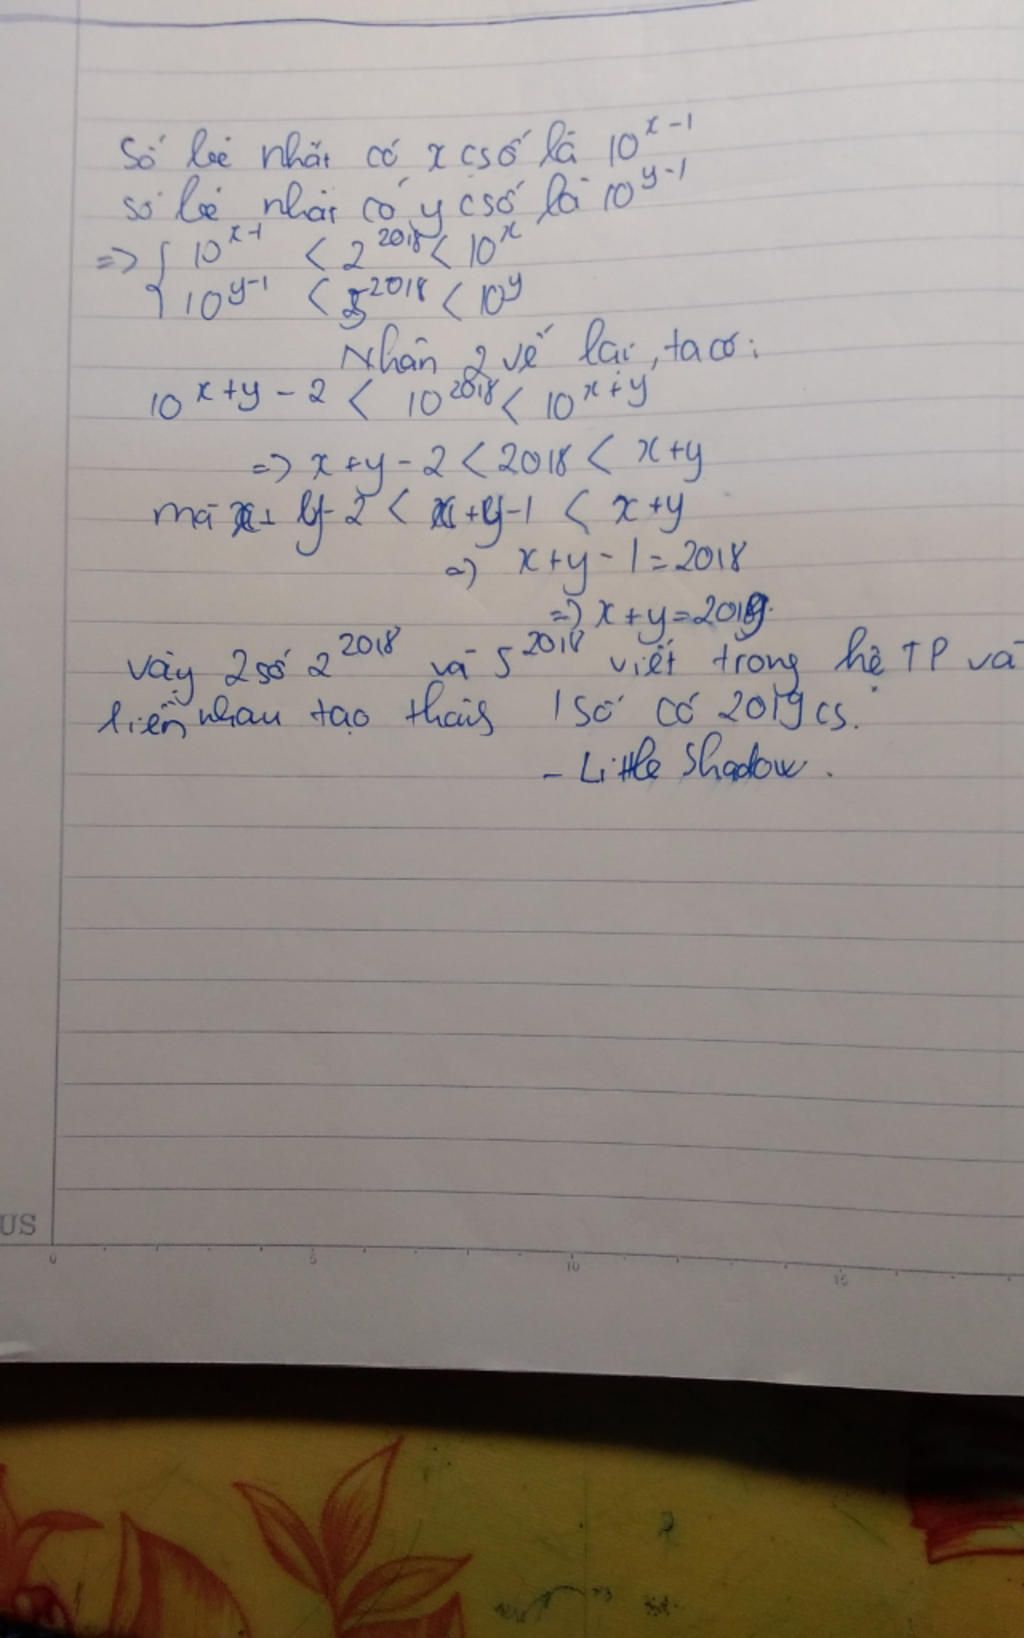 Số bé nhất có x csố là 10^{x-1}
số bé nhất có y csố là 10^{y-1}
=> { 10^{x-1} < 2^{2018} < 10^x
10^{y-1} < 5^{2018} < 10^y
Nhân 2 vế lại, ta có:
10^{x+y-2} < 10^{2018} < 10^{x+y}
=> x+y-2 < 2018 < x+y
mà x+y-2 < x+y-1 < x+y
=> x+y-1 = 2018
=> x+y = 2019.
Vậy 2 số 2^{2018} và 5^{2018} viết trong hệ TP và
liền nhau tạo thành 1 số có 2019 cs.
- Little Shadow.
US
0 5 10 15